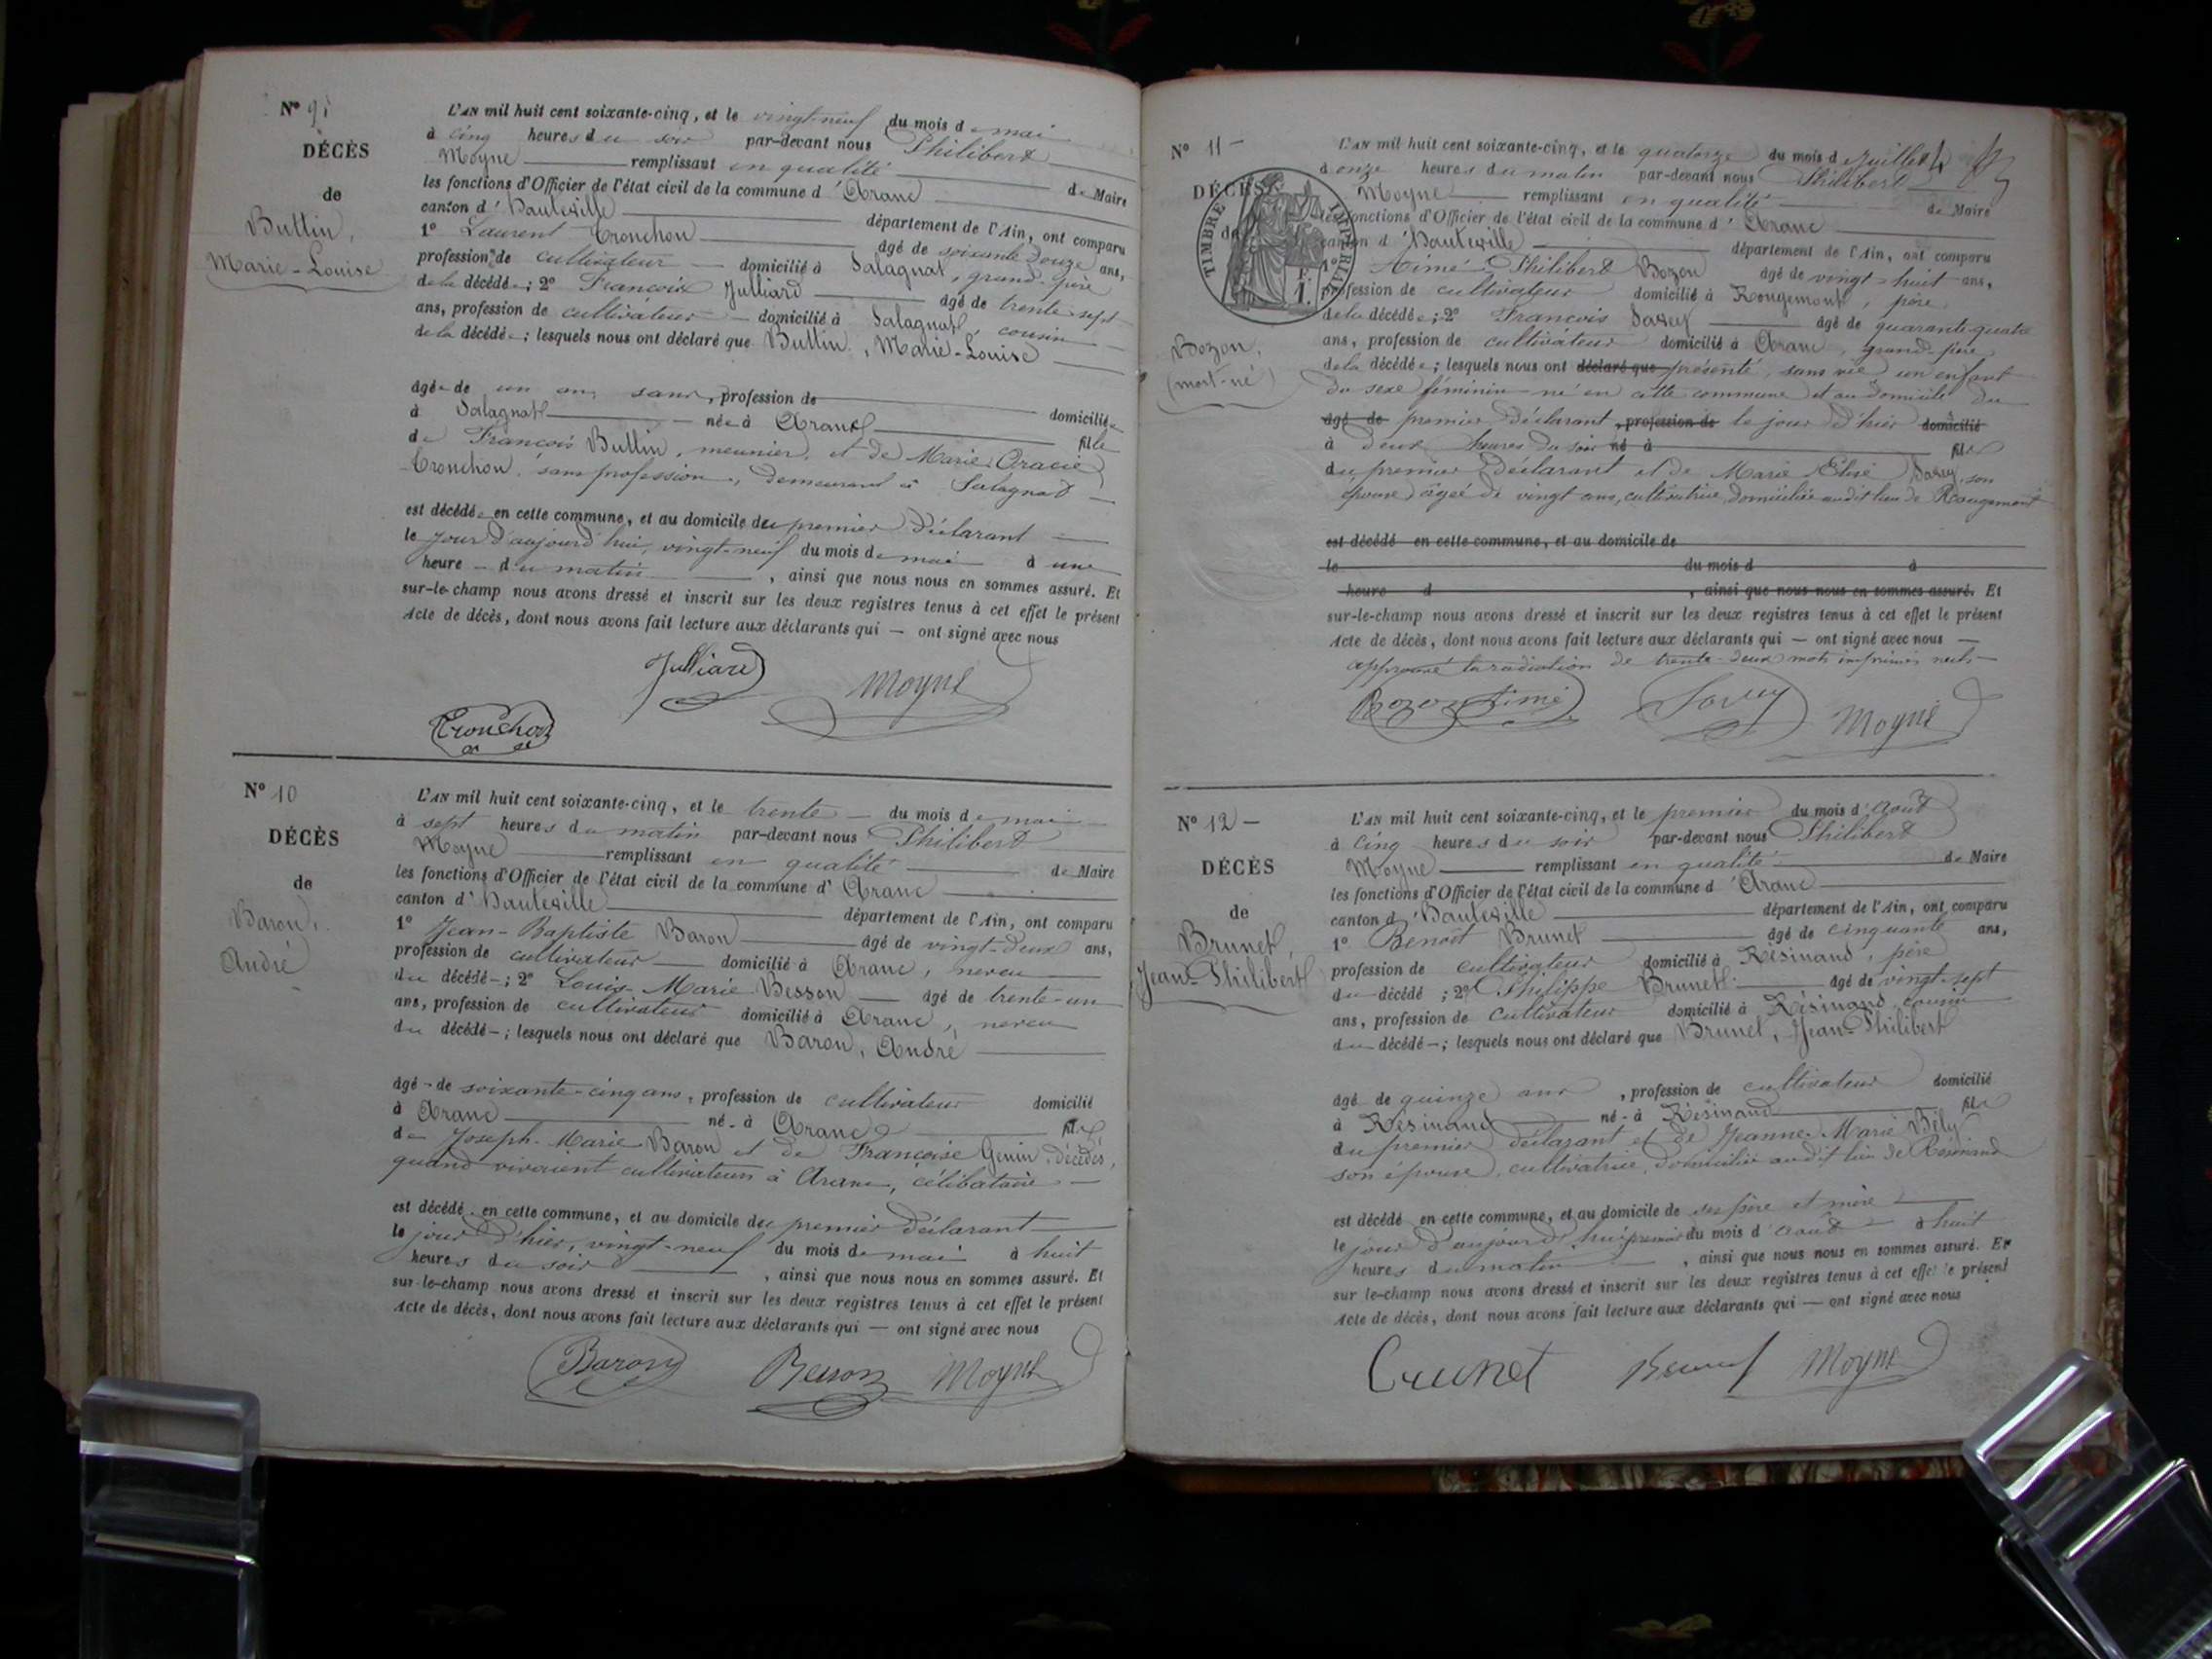 N° 9
DÉCÈS
de
Buttin,
Marie-Louise
L'AN mil huit cent soixante-cinq, et le vingt-neuf du mois de mai
à cinq heures du soir par-devant nous Philibert
Moyne remplissant en qualité
les fonctions d'Officier de l'état civil de la commune d'Aranc de Maire
canton d'Hauteville département de l'Ain, ont comparu
1° Laurent Tronchon âgé de soixante-douze ans,
profession de cultivateur domicilié à Salagnat, grand-père
de la décédée; 2° François Julliard âgé de trente-sept
ans, profession de cultivateur domicilié à Salagnat, cousin
de la décédée; lesquels nous ont déclaré que Buttin, Marie-Louise
âgée de un an, sans, profession de
à Salagnat née à Aranc domiciliée
de François Buttin, meunier, et de Marie fille
Tronchon, sans profession, demeurant à Salagnat
est décédée en cette commune, et au domicile du premier déclarant
le jour d'aujourd'hui, vingt-neuf du mois de mai à une
heure du matin, ainsi que nous nous en sommes assuré. Et
sur-le-champ nous avons dressé et inscrit sur les deux registres tenus à cet effet le présent
Acte de décès, dont nous avons fait lecture aux déclarants qui — ont signé avec nous
Julliard Moyne
Tronchon
N° 10
DÉCÈS
de
Baron,
André
L'AN mil huit cent soixante-cinq, et le trente du mois de mai
à sept heures du matin par-devant nous Philibert
Moyne remplissant en qualité
les fonctions d'Officier de l'état civil de la commune d'Aranc de Maire
canton d'Hauteville département de l'Ain, ont comparu
1° Jean-Baptiste Baron âgé de vingt-deux ans,
profession de cultivateur domicilié à Aranc, neveu
du décédé; 2° Louis-Marie Besson âgé de trente-un
ans, profession de cultivateur domicilié à Aranc, neveu
du décédé; lesquels nous ont déclaré que Baron, André
âgé de soixante-cinq ans, profession de cultivateur domicilié
à Aranc né à Aranc fils
de Joseph-Marie Baron et de Françoise Genin, décédés,
quand vivaient cultivateurs à Aranc, célibataire
est décédé en cette commune, et au domicile du premier déclarant
le jour d'hier, vingt-neuf du mois de mai à huit
heures du soir, ainsi que nous nous en sommes assuré. Et
sur-le-champ nous avons dressé et inscrit sur les deux registres tenus à cet effet le présent
Acte de décès, dont nous avons fait lecture aux déclarants qui — ont signé avec nous
Baron Besson Moyne
N° 11
DÉCÈS
de
TIMBRE IMPERIAL
1 F.
Bozon,
(mort-né)
L'AN mil huit cent soixante-cinq, et le quatorze du mois d Juillet
à onze heures du matin par-devant nous Philibert
Moyne remplissant en qualité de Maire
les fonctions d'Officier de l'état civil de la commune d'Aranc
canton d'Hauteville département de l'Ain, ont comparu
1° Aimé Philibert Bozon âgé de vingt-huit ans,
profession de cultivateur domicilié à Rougemont, père
de la décédée; 2° François Savey âgé de quarante-quatre
ans, profession de cultivateur domicilié à Aranc, grand-père
de la décédée; lesquels nous ont déclaré que présenté, sans vie, un enfant
du sexe féminin né en cette commune et au domicile du
âgé de premier déclarant, profession de le jour d'hier domicilié
à deux heures du soir né à fille
du premier déclarant et de Marie Elise Savey, son
épouse, âgée de vingt ans, cultivatrice, domiciliée audit lieu de Rougemont
est décédé en cette commune, et au domicile de
le du mois d à
heure d, ainsi que nous nous en sommes assuré. Et
sur-le-champ nous avons dressé et inscrit sur les deux registres tenus à cet effet le présent
Acte de décès, dont nous avons fait lecture aux déclarants qui — ont signé avec nous —
approuvé la radiation de trente-deux mots imprimés nuls
Bozon Aimé Savey Moyne
N° 12
DÉCÈS
de
Brunet,
Jean-Philibert
L'AN mil huit cent soixante-cinq, et le premier du mois d'août
à cinq heures du soir par-devant nous Philibert
Moyne remplissant en qualité de Maire
les fonctions d'Officier de l'état civil de la commune d'Aranc
canton d'Hauteville département de l'Ain, ont comparu
1° Benoît Brunet âgé de cinquante ans,
profession de cultivateur domicilié à Résinand, père
du décédé; 2° Philippe Brunet âgé de vingt-sept
ans, profession de cultivateur domicilié à Résinand, cousin
du décédé; lesquels nous ont déclaré que Brunet, Jean Philibert
âgé de quinze ans, profession de cultivateur domicilié
à Résinand né à Résinand fils
du premier déclarant et de Jeanne-Marie Bély
son épouse, cultivatrice, domiciliée audit lieu de Résinand
est décédé en cette commune, et au domicile de ses père et mère
le jour d'aujourd'hui, premier du mois d'août à huit
heures du matin, ainsi que nous nous en sommes assuré. Et
sur le-champ nous avons dressé et inscrit sur les deux registres tenus à cet effet le présent
Acte de décès, dont nous avons fait lecture aux déclarants qui — ont signé avec nous
Brunet Brunet Moyne